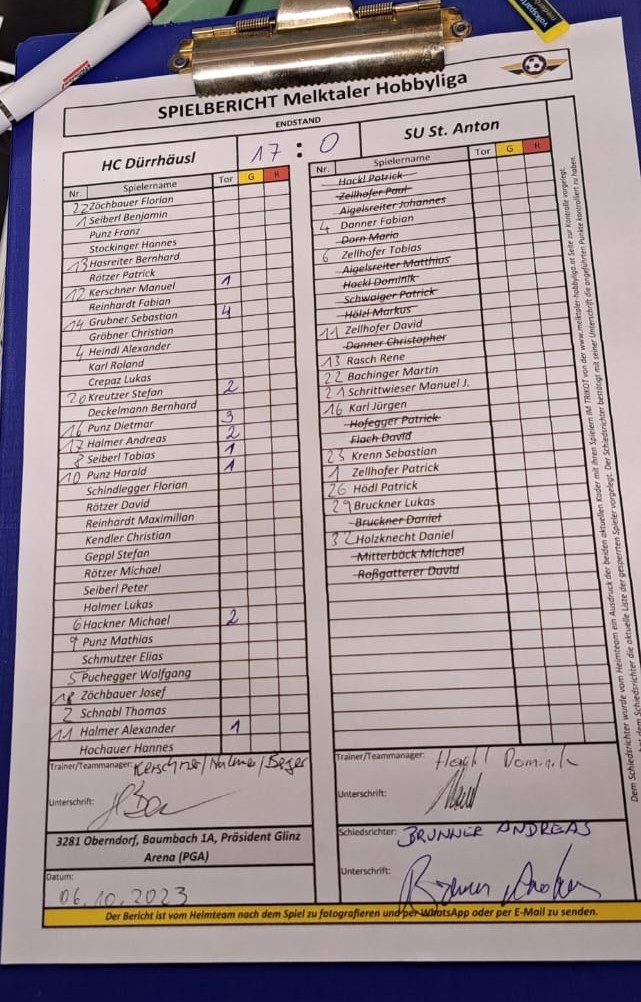 SPIELBERICHT Melktaler Hobbyliga
ENDSTAND
HC Dürrhäusl
17 : 0
SU St. Anton
Nr. Spielername Tor G R
22 Zöchbauer Florian
1 Seiberl Benjamin
Punz Franz
Stockinger Hannes
13 Hasreiter Bernhard
Rötzer Patrick
12 Kerschner Manuel 1
Reinhardt Fabian
14 Grubner Sebastian 4
Gröbner Christian
4 Heindl Alexander
Karl Roland
Crepaz Lukas
20 Kreutzer Stefan 2
Deckelmann Bernhard
16 Punz Dietmar 3
17 Halmer Andreas 2
8 Seiberl Tobias 1
10 Punz Harald 1
Schindlegger Florian
Rötzer David
Reinhardt Maximilian
Kendler Christian
Geppl Stefan
Rötzer Michael
Seiberl Peter
Halmer Lukas
6 Hackner Michael 2
9 Punz Mathias
Schmutzer Elias
5 Puchegger Wolfgang
18 Zöchbauer Josef
2 Schnabl Thomas
11 Halmer Alexander 1
Hochauer Hannes
Trainer/Teammanager: Kerschner/Halmer/
Unterschrift:
3281 Oberndorf, Baumbach 1A, Präsident Glinz
Arena (PGA)
Datum:
06.10.2023
Nr. Spielername Tor G R
Hackl Patrick
Zellhofer Paul
Aigelsreiter Johannes
4 Danner Fabian
Dorn Mario
6 Zellhofer Tobias
Aigelsreiter Matthias
Hackl Dominik
Schwaiger Patrick
Hölzl Markus
11 Zellhofer David
Danner Christopher
13 Rasch Rene
22 Bachinger Martin
21 Schrittwieser Manuel J.
16 Karl Jürgen
Hofegger Patrick
Flach David
23 Krenn Sebastian
1 Zellhofer Patrick
26 Hödl Patrick
29 Bruckner Lukas
Bruckner Daniel
32 Holzknecht Daniel
Mitterböck Michael
Roßgatterer David
Trainer/Teammanager: Hackl Dominik
Unterschrift:
Schiedsrichter: BRUNNER ANDREAS
Unterschrift:
Der Bericht ist vom Heimteam nach dem Spiel zu fotografieren und per WhatsApp oder per E-Mail zu senden.
Dem Schiedsrichter wurde vom Heimteam ein Ausdruck der beiden aktuellen Kader mit ihren Spielern IM TRIKOT von der www.melktaler-hobbyliga.at Seite zur Kontrolle vorgelegt.
dem Schiedsrichter die aktuelle Liste der gesperrten Spieler vorgelegt. Der Schiedsrichter bestätigt mit seiner Unterschrift die angeführten Punkte kontrolliert zu haben.